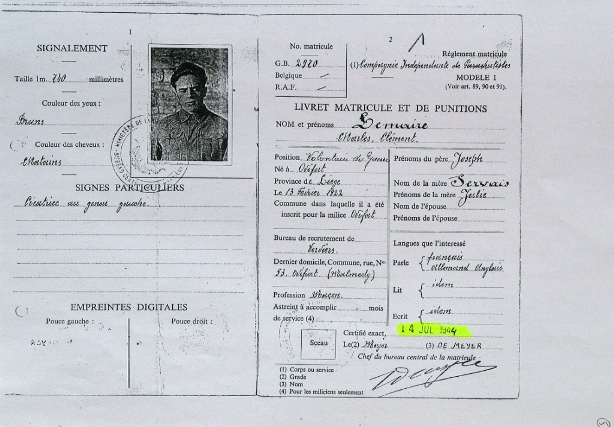 1
SIGNALEMENT
Taille 1m. 780 millimètres
Couleur des yeux :
Bruns
Couleur des cheveux :
Châtains
SIGNES PARTICULIERS
Cicatrice au genou gauche.
EMPREINTES DIGITALES
Pouce gauche :
Pouce droit :
2
No. matricule
G.B. 2920
Belgique
R.A.F.
Réglement matricule
(1) Compagnie Indépendante de Parachutistes
MODELE 1
(Voir art. 89, 90 et 91).
LIVRET MATRICULE ET DE PUNITIONS
NOM et prénoms Lemaire
Charles, Clément.
Position Volontaire de Guerre
Né à Ovifat
Province de Liège
Le 13 Février 1922
Commune dans laquelle il a été
inscrit pour la milice Ovifat
Bureau de recrutement de
Verviers
Dernier domicile, Commune, rue, No
53. Ovifat (Malmedy)
Profession
Astreint à accomplir mois
de service (4)
Prénoms du père Joseph
Nom de la mère Servais
Prénoms de la mère Julie
Nom de l'épouse
Prénoms de l'épouse
Langues que l'interessé
Parle français
Allemand Anglais
Lit idem
Ecrit idem
Sceau
Certifié exact,
14 JUL 1944
Le (2) (3) DE MEYER
Chef du bureau central de la matricule
(1) Corps ou service
(2) Grade
(3) Nom
(4) Pour les miliciens seulement